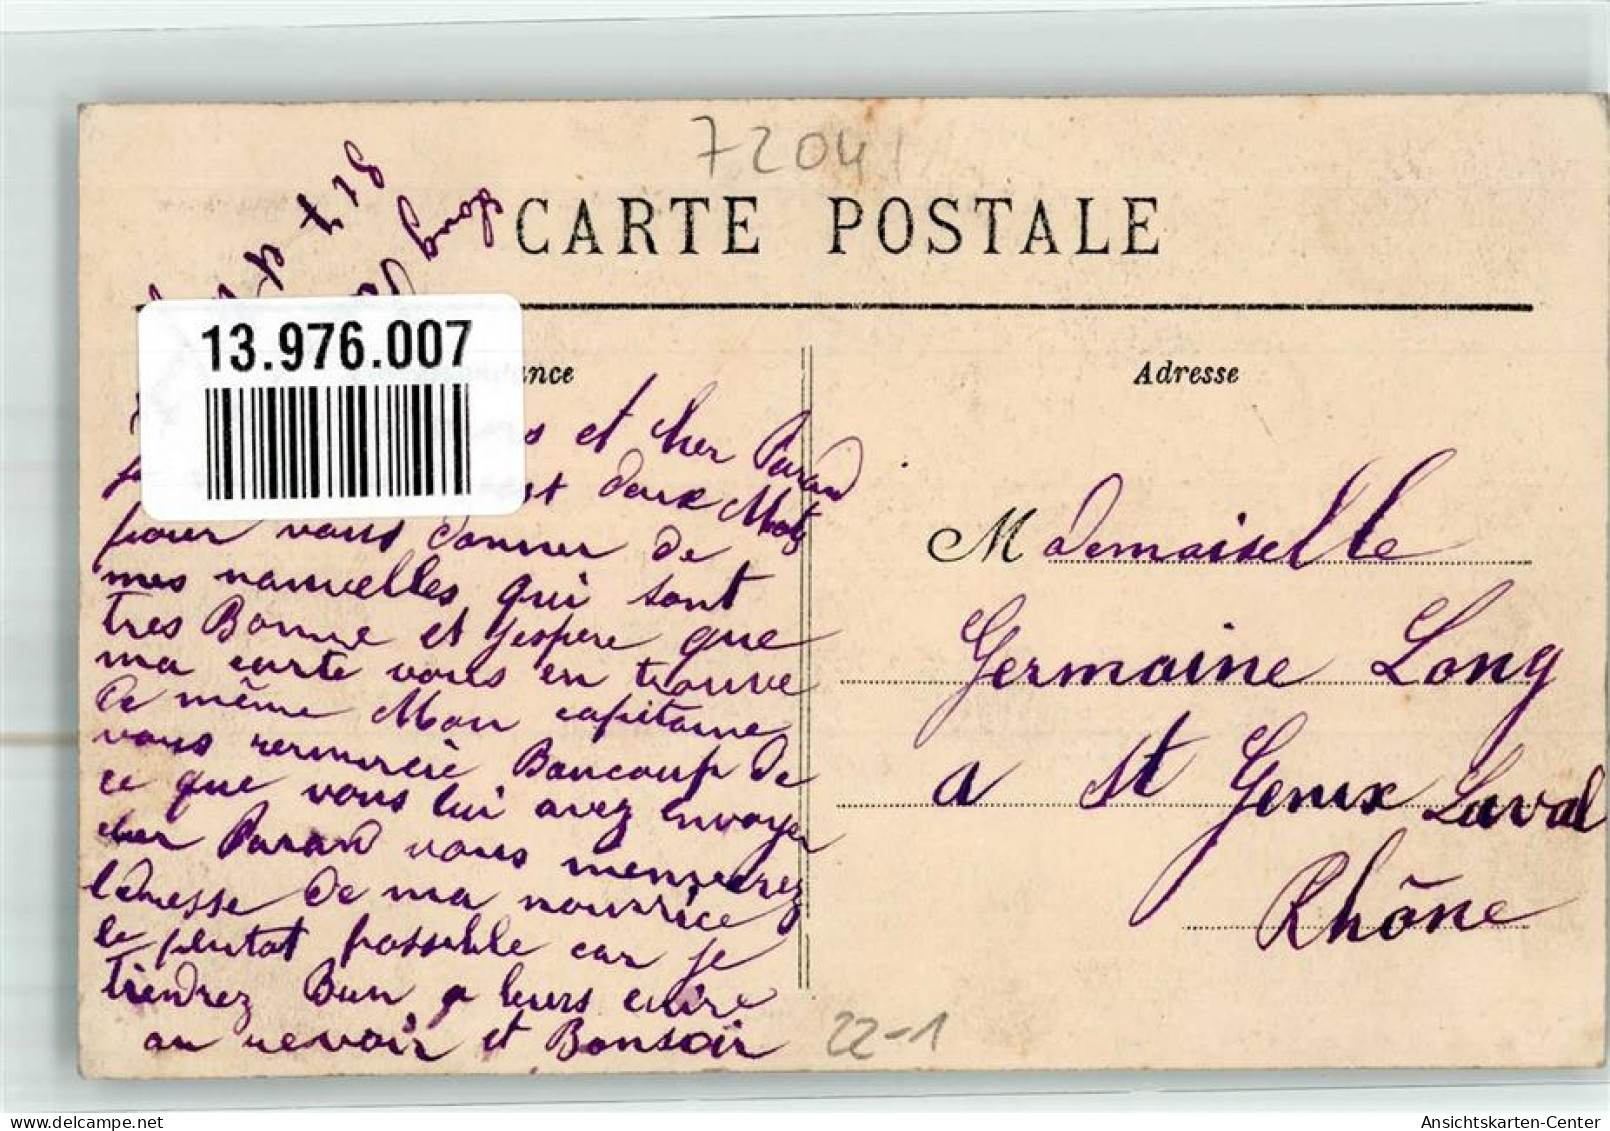 72041
CARTE POSTALE
13.976.007
nce
Adresse
s et cher Parand
st deux Mots
pour vous donner de
mes nauvelles qui sont
tres Bonne et jespere que
ma carte vous en trouve
de même Mon capitaine
vous remercie Boncoup de
ce que vous lui avez envoyer
cher Parand vous menverez
ladresse de ma nourrice
le plutot possible car je
tiendrez Bien a leurs ecrire
au revoir et Bonsoir
Mademoiselle
Germaine Long
a St Genix Laval
Rhône
22-1
Ansichtskarten-Center